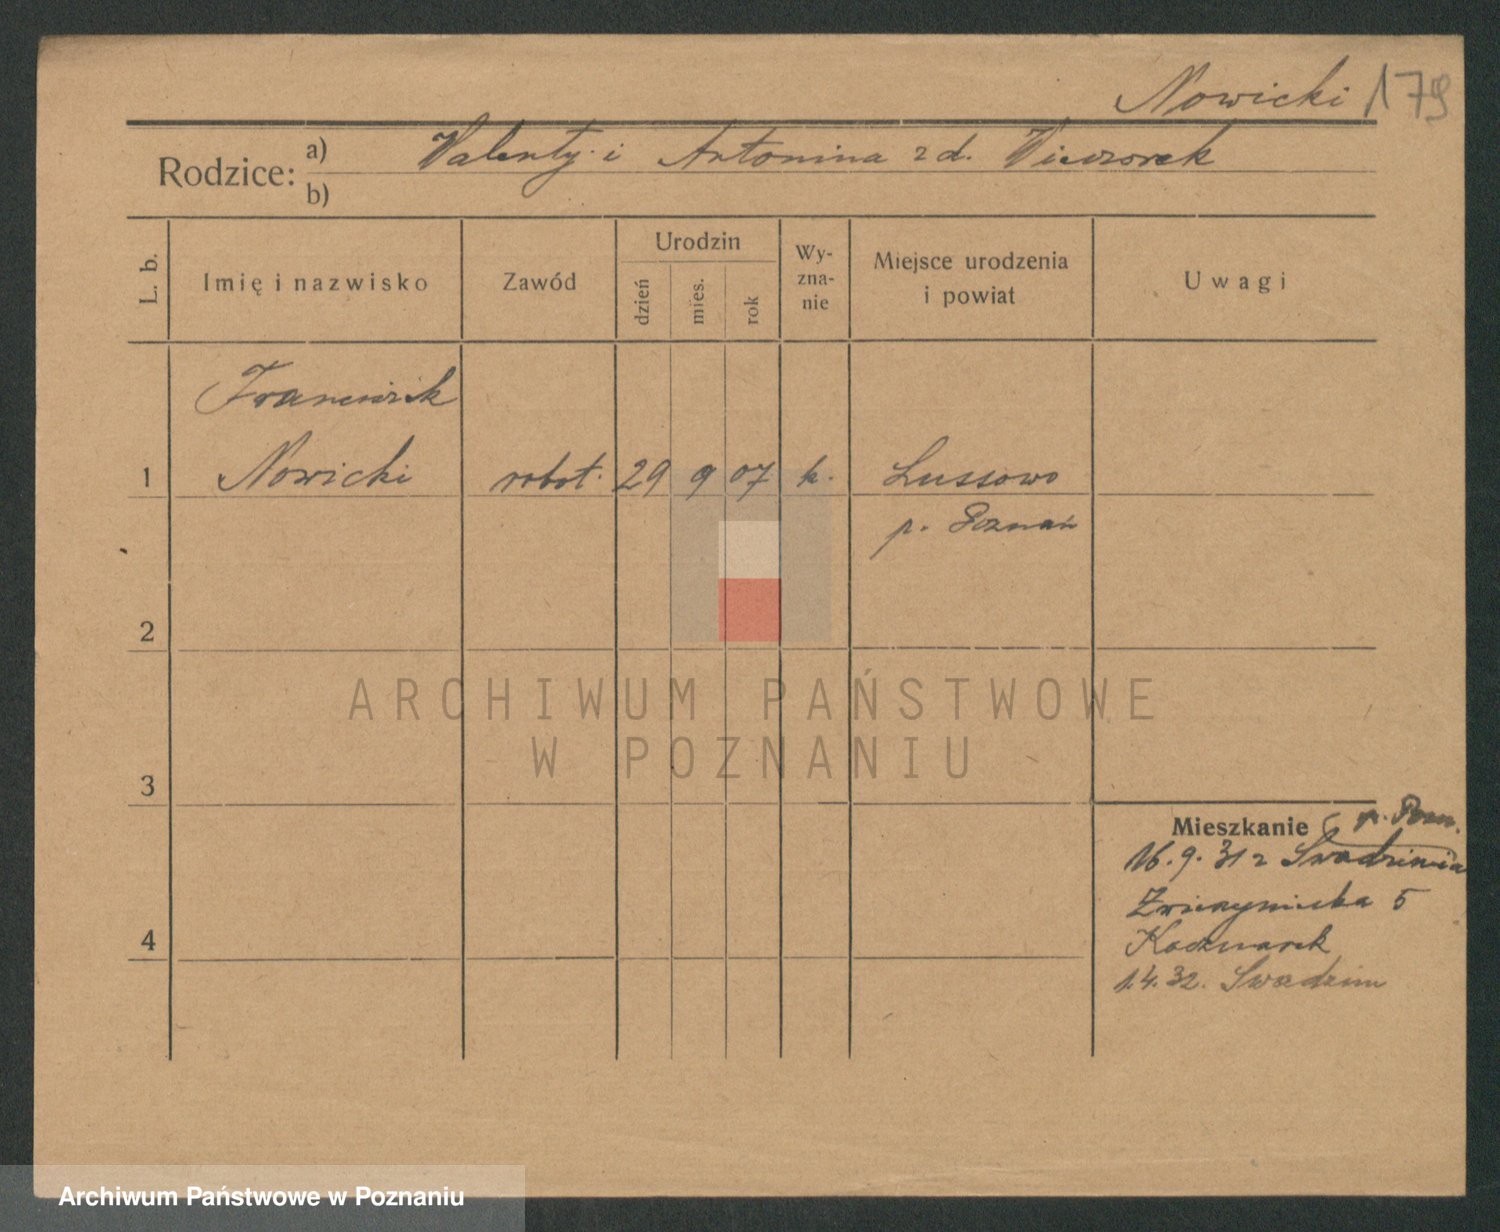 Nowicki 179
Rodzice: a) Walenty i Antonina z d. Wieczorek
b)
L. b.
Imię i nazwisko
Zawód
Urodzin
dzień
mies.
rok
Wy-
zna-
nie
Miejsce urodzenia
i powiat
Uwagi
Franciszek
1 Nowicki robot. 29 9 07 k. Lussowo
p. Poznań
2
3
4
ARCHIWUM PAŃSTWOWE
W POZNANIU
Mieszkanie p. Pozn.
16.9.31 z Swadzimia
Zwierzyniecka 5
Kaczmarek
1.4.32. Swadzim
Archiwum Państwowe w Poznaniu